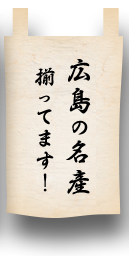 広島の名産
揃ってます！